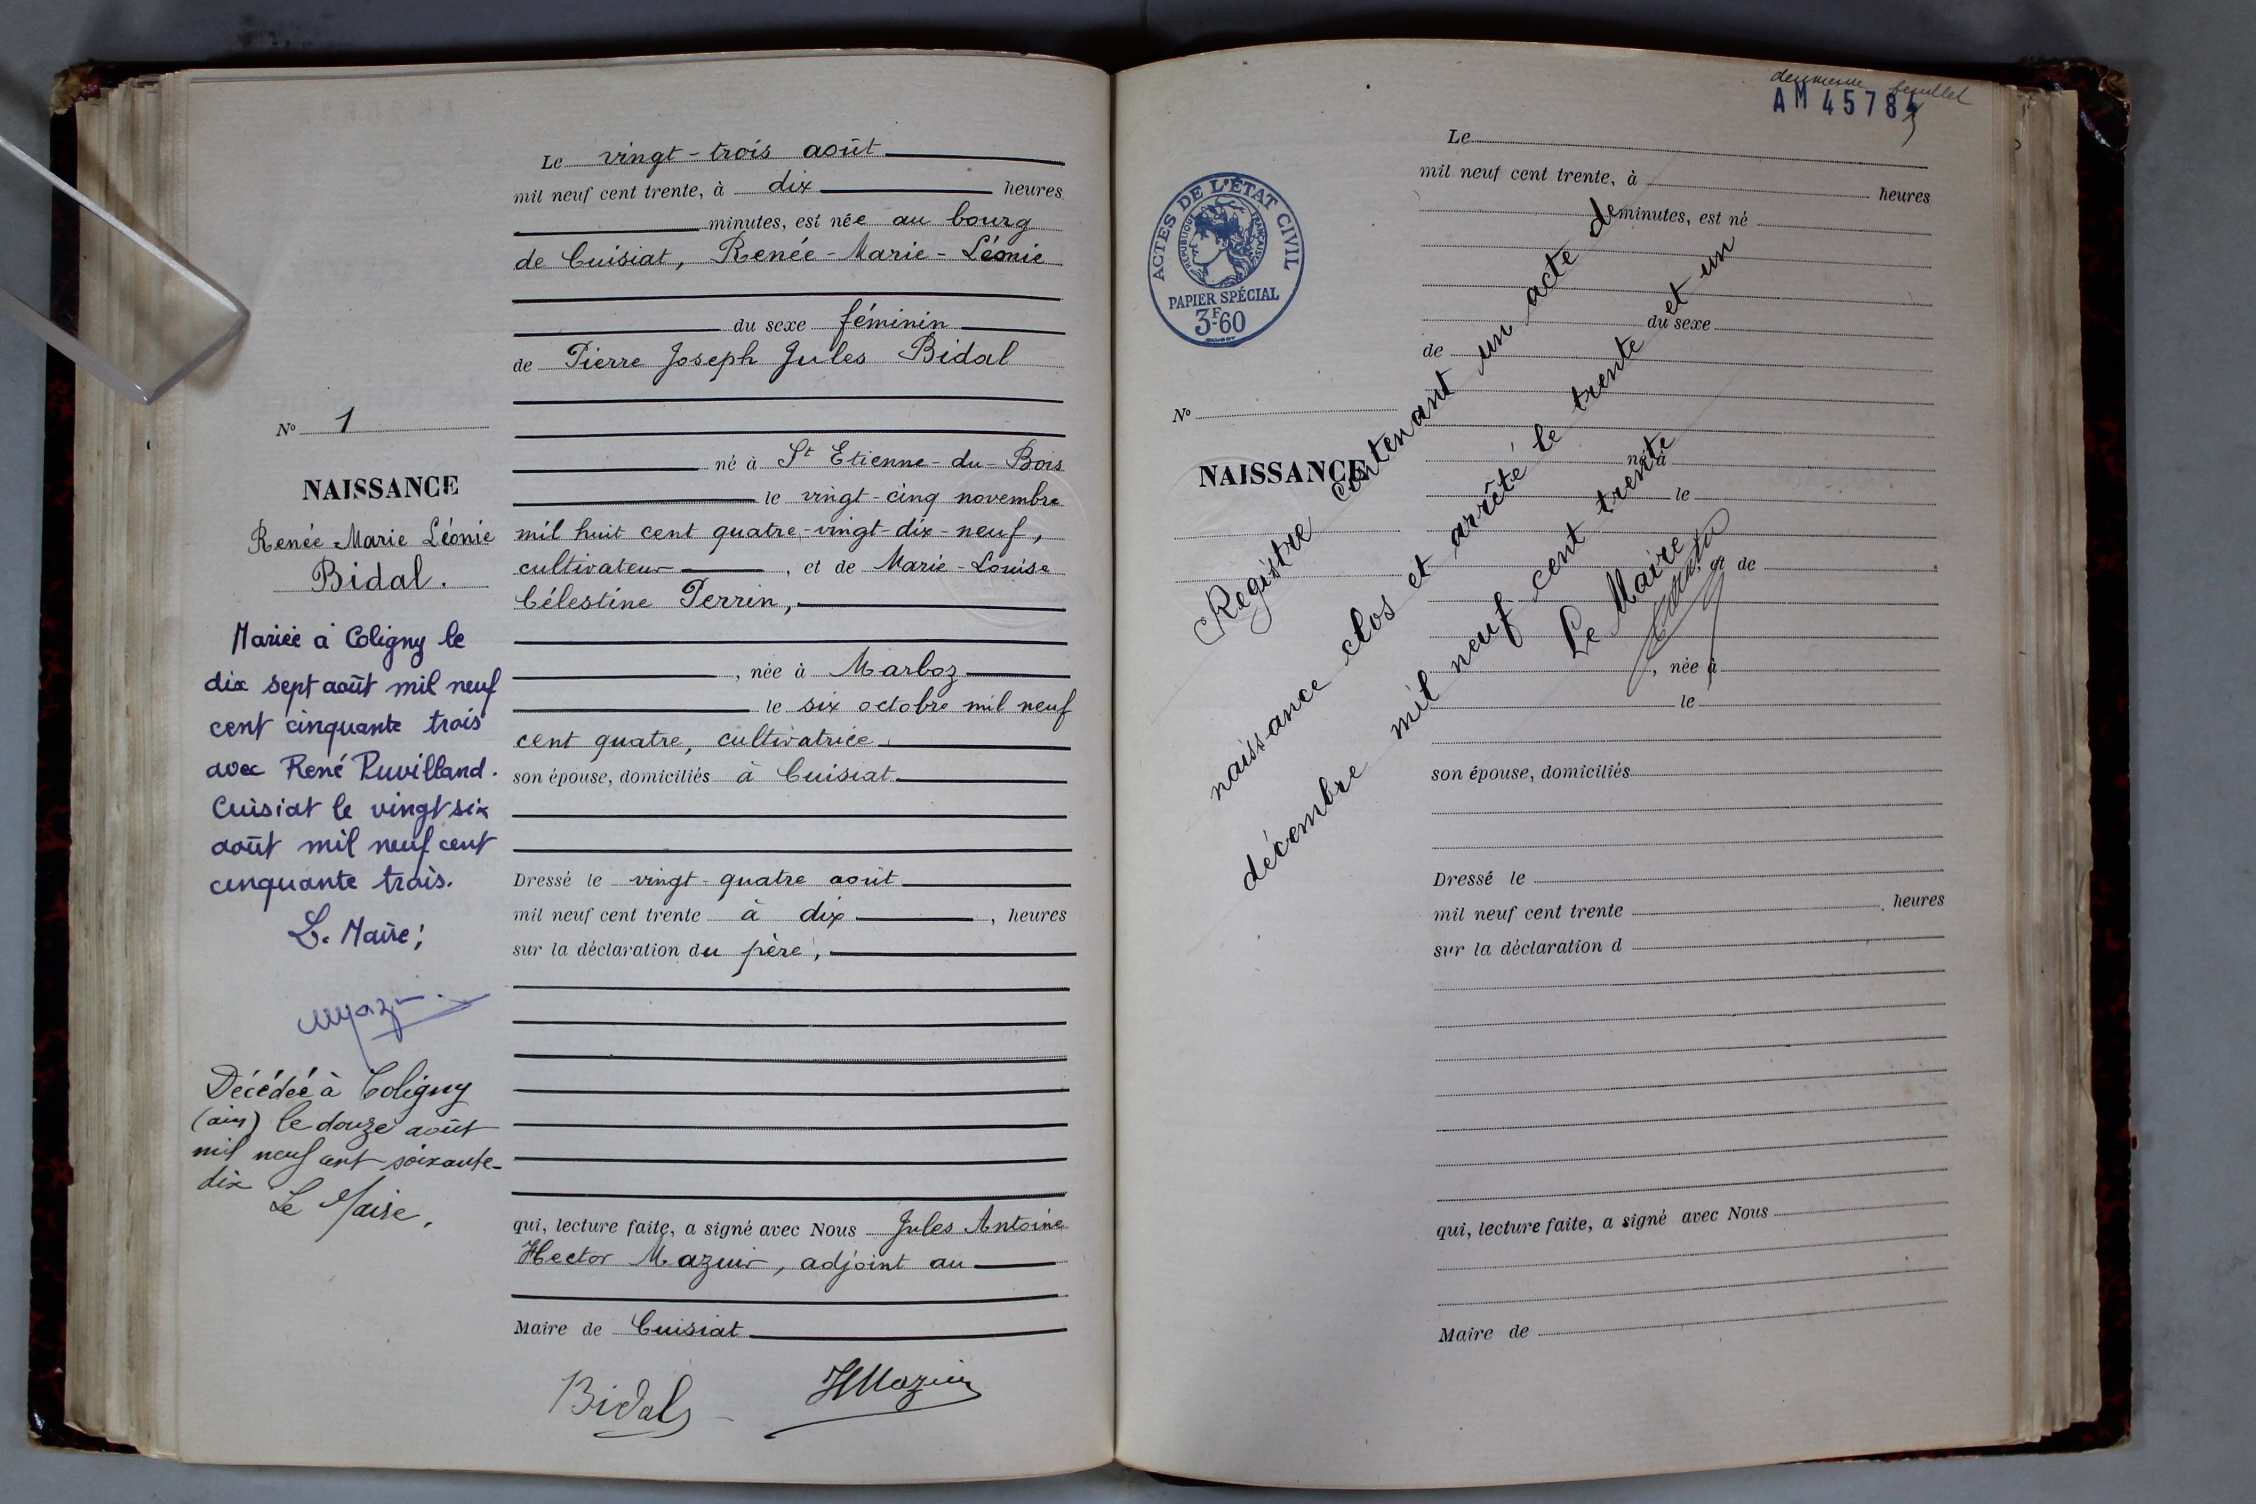 Le vingt-trois août
mil neuf cent trente, à dix heures
minutes, est née au bourg
de Cuisiat, Renée-Marie-Léonie
du sexe féminin
de Pierre Joseph Jules Bidal
né à St Etienne-du-Bois
le vingt-cinq novembre
mil huit cent quatre-vingt-dix-neuf,
cultivateur, et de Marie-Louise
Célestine Perrin,
, née à Marboz
le six octobre mil neuf
cent quatre, cultivatrice
son épouse, domiciliés à Cuisiat
Dressé le vingt-quatre août
mil neuf cent trente à dix, heures
sur la déclaration du père,
qui, lecture faite, a signé avec Nous Jules Antoine
Hector Mazuir, adjoint au
Maire de Cuisiat
Bidal
HMazuir
No 1
NAISSANCE
Renée Marie Léonie
Bidal.
Mariée à Coligny le
dix sept août mil neuf
cent cinquante trois
avec René Puvilland.
Cuisiat le vingt six
août mil neuf cent
cinquante trois.
L. Maire;
Décédée à Coligny
(ain) le douze août
mil neuf cent soixante-
dix
Le Maire,
deuxième feuillet
AM 45784
ACTES DE L'ÉTAT CIVIL
RÉPUBLIQUE FRANÇAISE
PAPIER SPÉCIAL
3F60
No
NAISSANCE
Le
mil neuf cent trente, à heures
minutes, est né
du sexe
de
né à
le
, et de
, née à
le
son épouse, domiciliés
Dressé le
mil neuf cent trente, heures
sur la déclaration d
qui, lecture faite, a signé avec Nous
Maire de
Registre contenant un acte de
naissance clos et arrêté le trente et un
décembre mil neuf cent trente
Le Maire